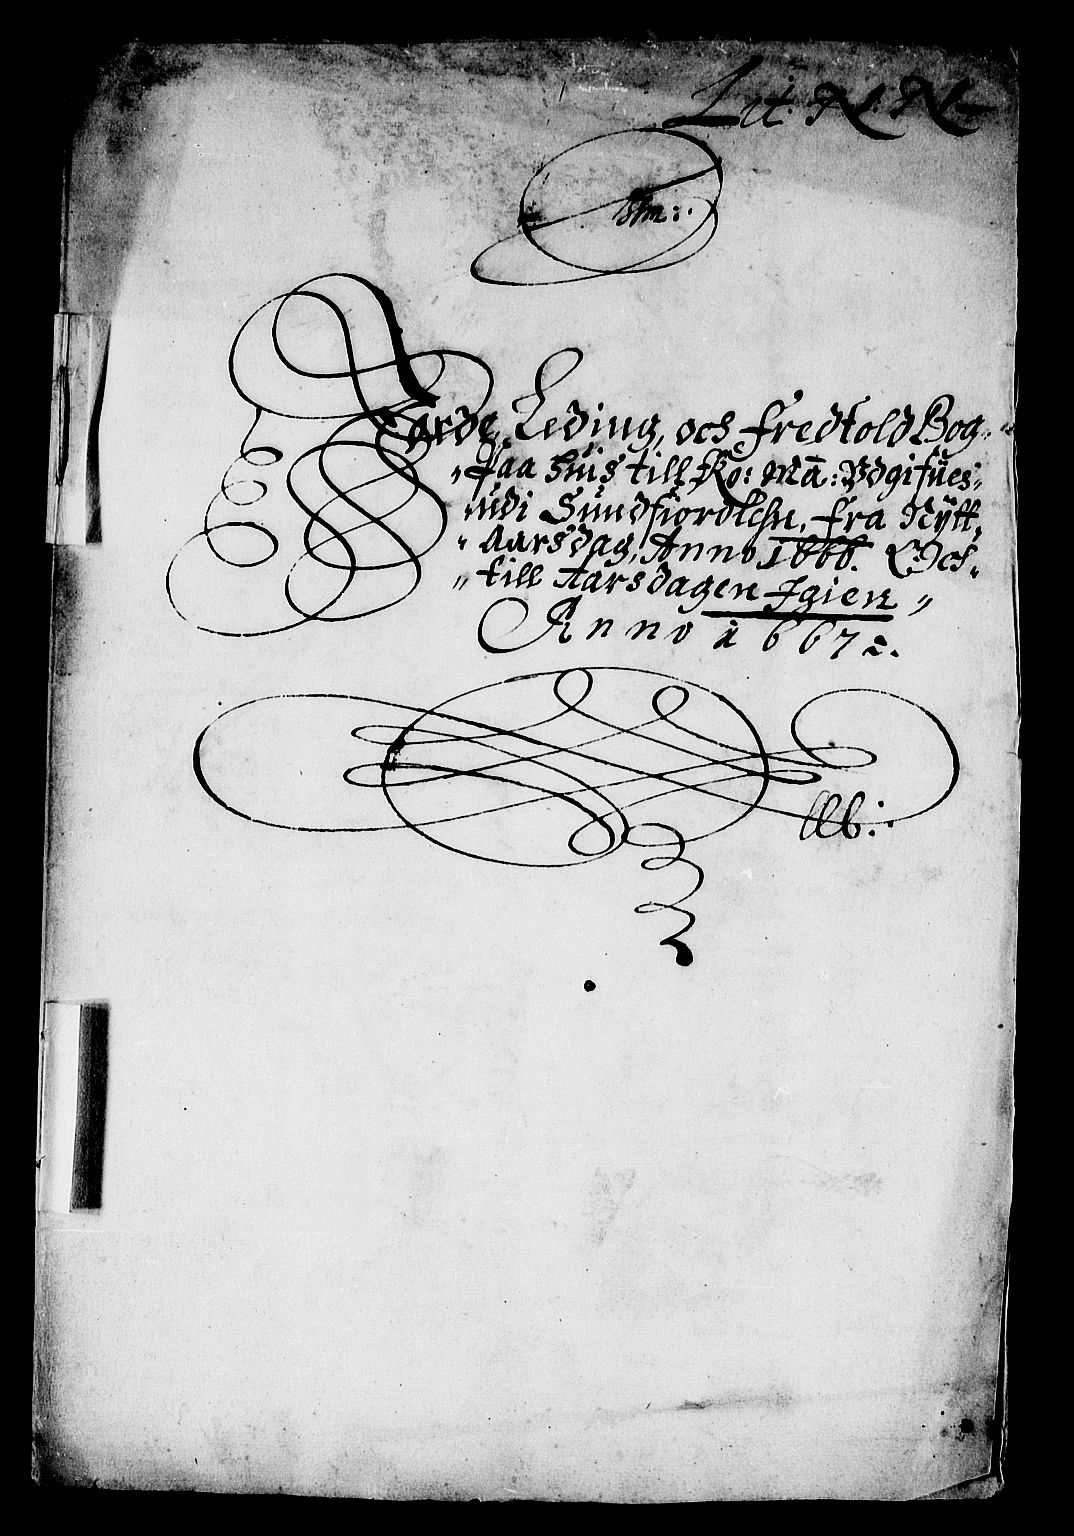 Lit: N: N:
Jorde, Leding, och fredtold Bog
paa huis till Ko: Ma: Udgifues
udi Sundfiordlehn, fra Nÿtt
aarsdag, Anno 1666. Och
till Aarsdagen Igien
Anno 1667